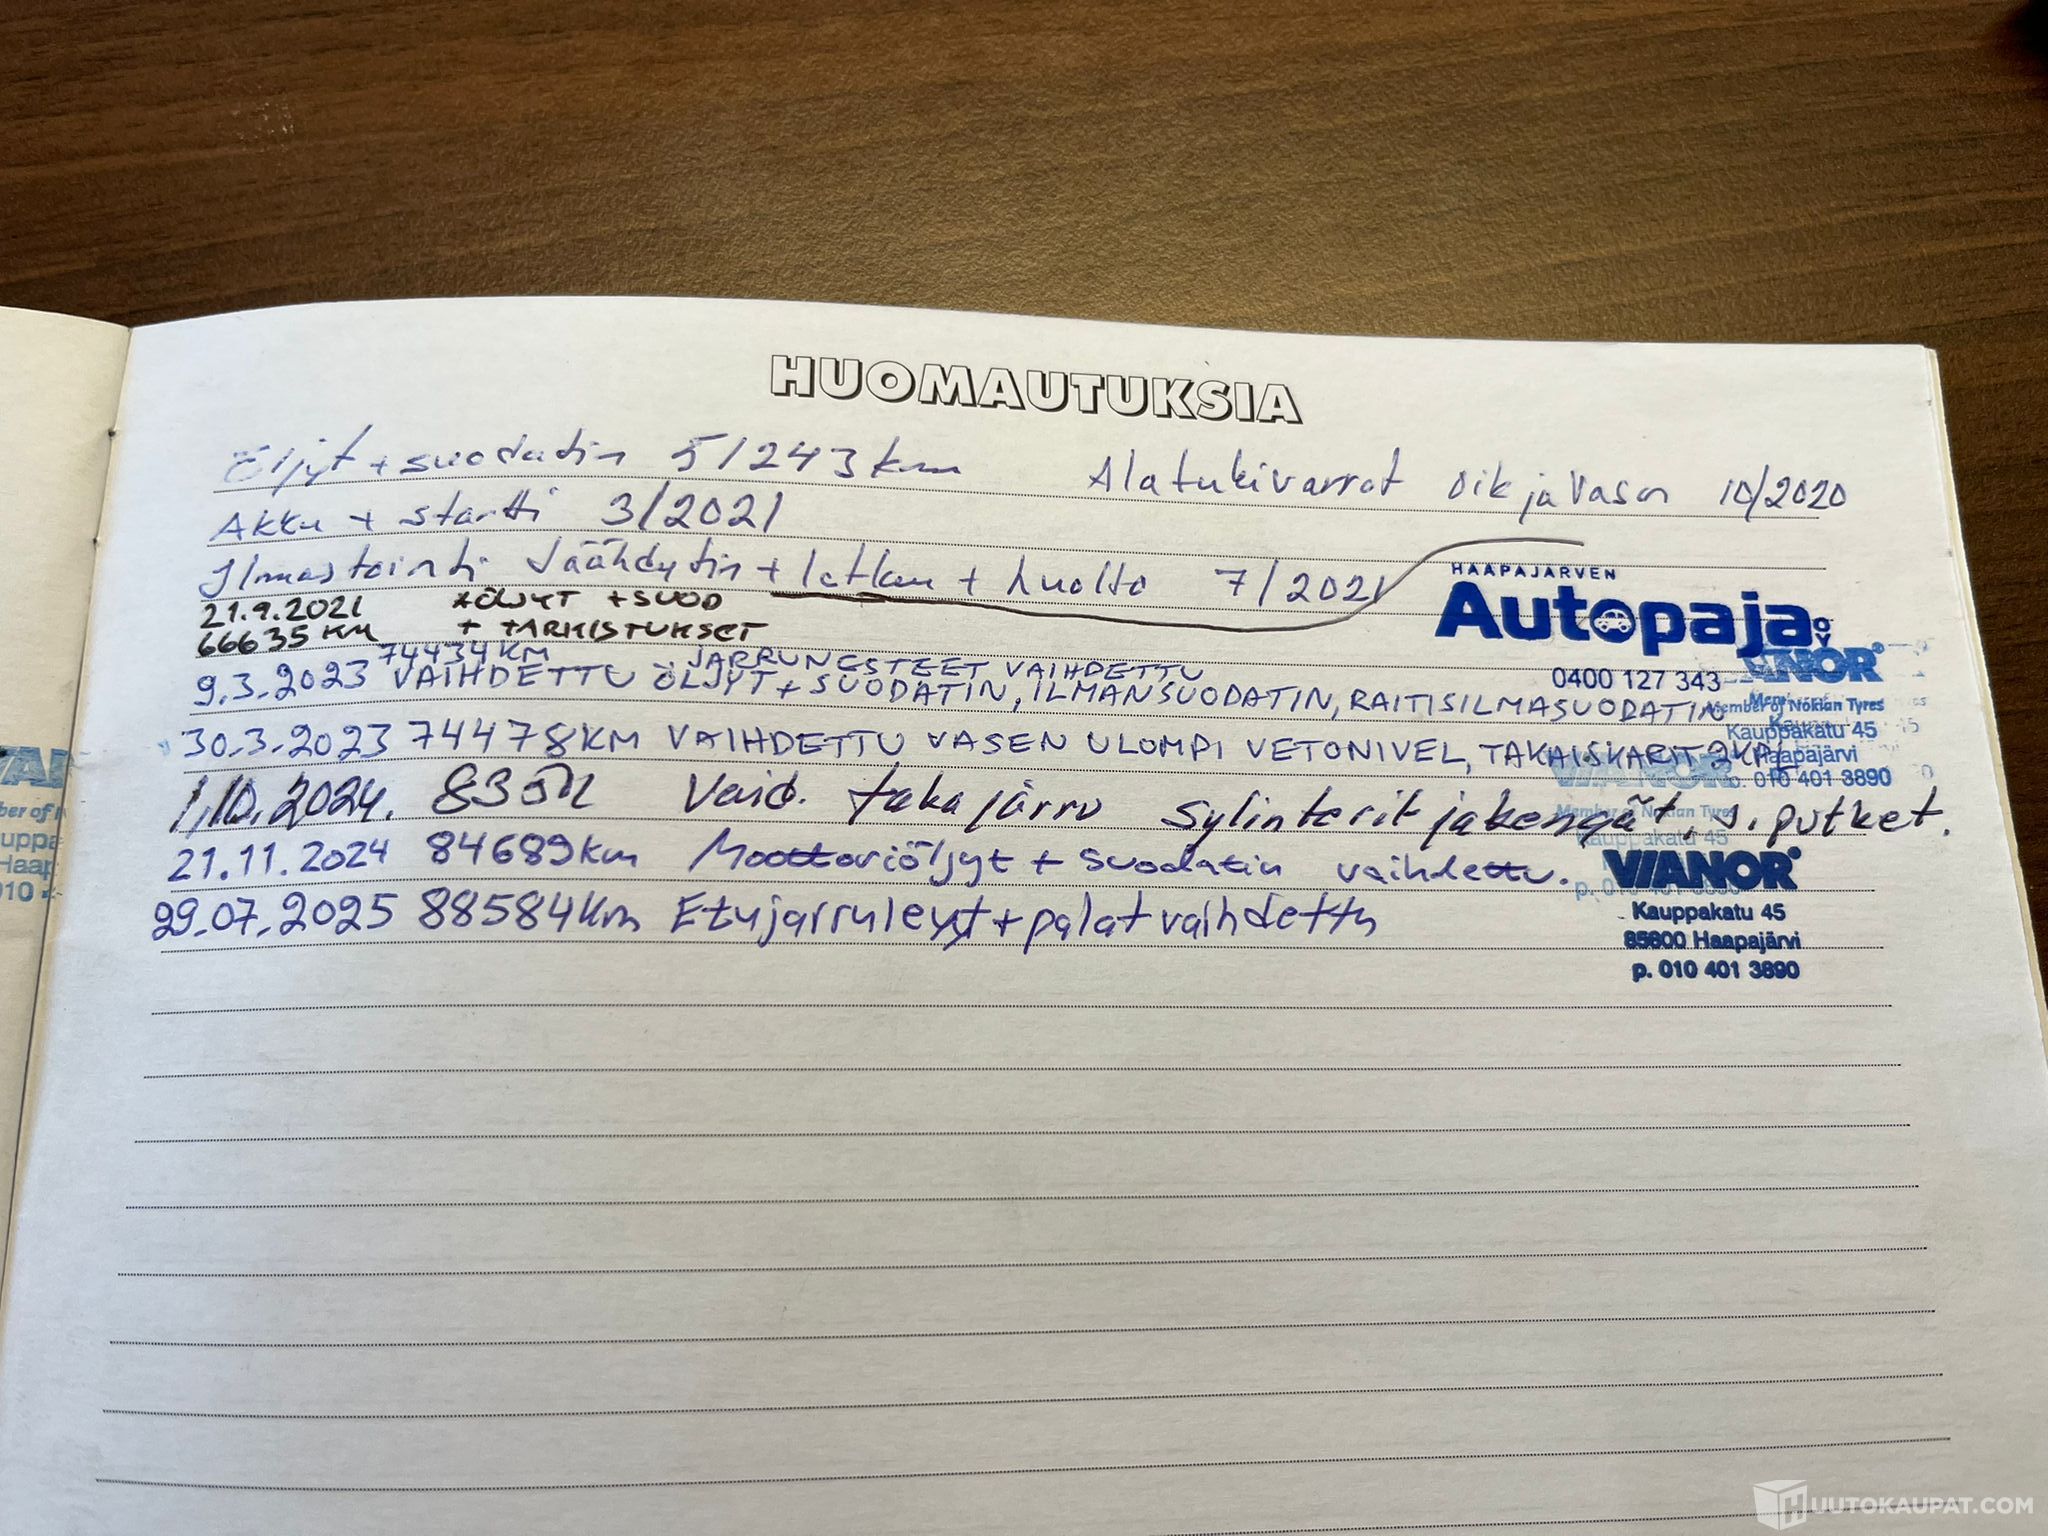 HUOMAUTUKSIA
Öljyt + suodatin 51243 km Alatukivarret oik ja vasen 10/2020
Akku + startti 3/2021
Ilmastointi Jäähdytin + letkun + huolto 7/2021
HAAPAJÄRVEN
Autopaja OY
0400 127 343
21.9.2021 +ÖLJYT +SUOD
66635 KM + TARKISTUKSET
74434 KM JARRUNESTEET VAIHDETTU
9.3.2023 VAIHDETTU ÖLJYT + SUODATIN, ILMANSUODATIN, RAITISILMASUODATIN
VIANOR
Member of Nokian Tyres
Kauppakatu 45
Haapajärvi
p. 010 401 3890
30.3.2023 74478KM VAIHDETTU VASEN ULOMPI VETONIVEL, TAKAISKARIT 2KPL
1.10.2024. Vaid. taka järru sylinterit ja kengät, j. putket.
Member of Nokian Tyres
Kauppakatu 45
21.11.2024 84689km Moottoriöljyt + suodatin vaihdettu.
29.07.2025 88584km Etujarrulevyt + palat vaihdettu
VIANOR
Kauppakatu 45
85800 Haapajärvi
p. 010 401 3890
HUUTOKAUPAT.COM